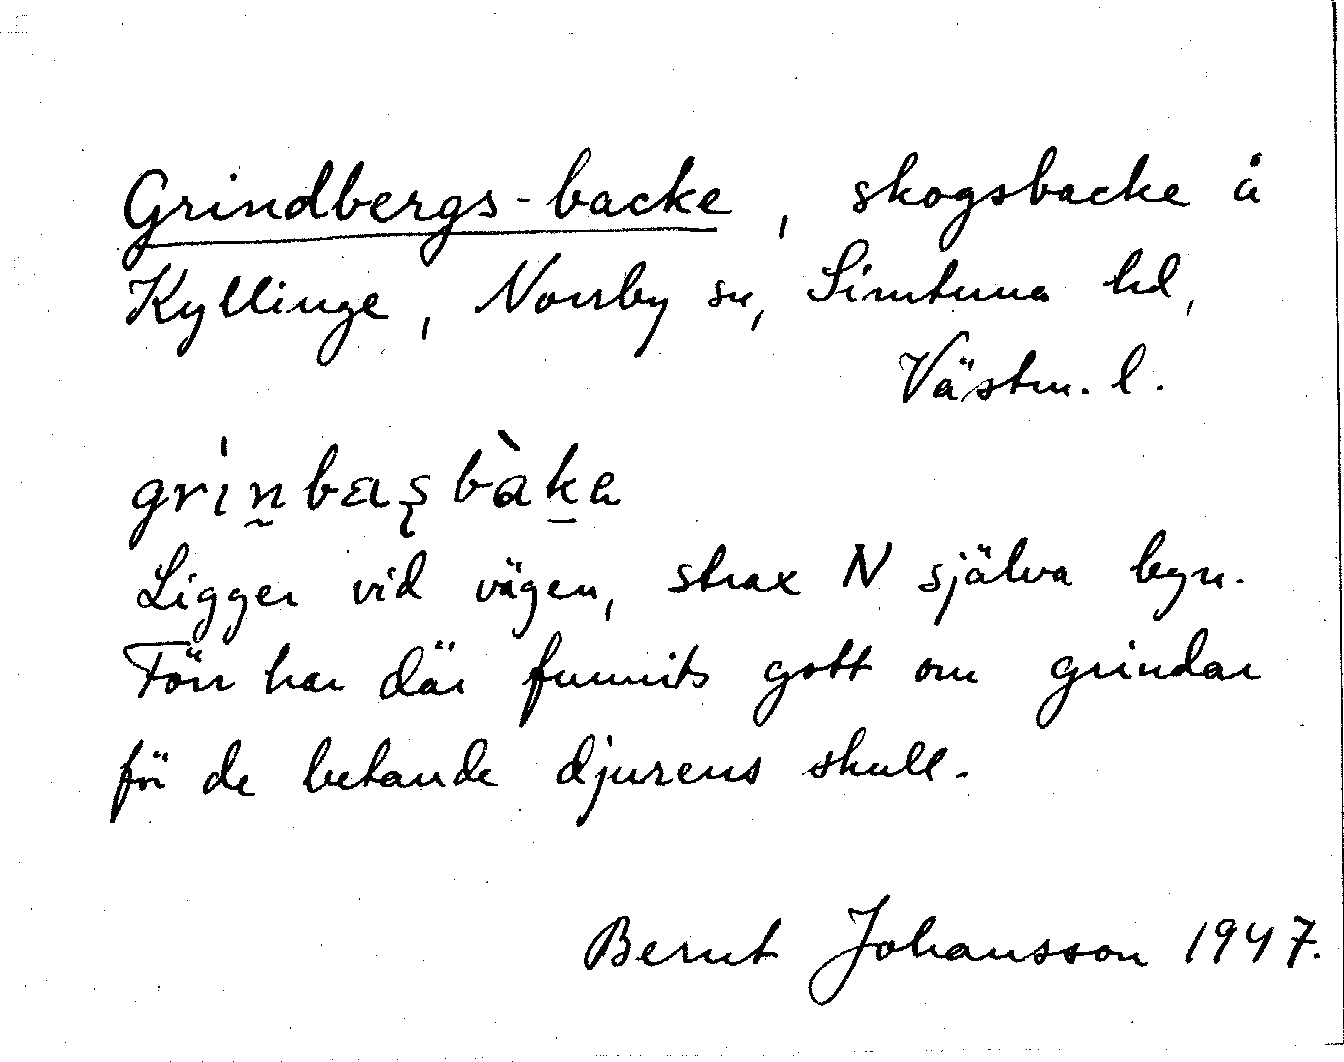 Grindbergs-backe, skogsbacke å
Kyllinge, Norrby sn, Simtuna hd,
Västm. l.
grin̰bęaʂbàk̠a
Ligger vid vägen, strax N själva byn.
Förr har där funnits gott om grindar
för de betande djurens skull.
Bernt Johansson 1947.